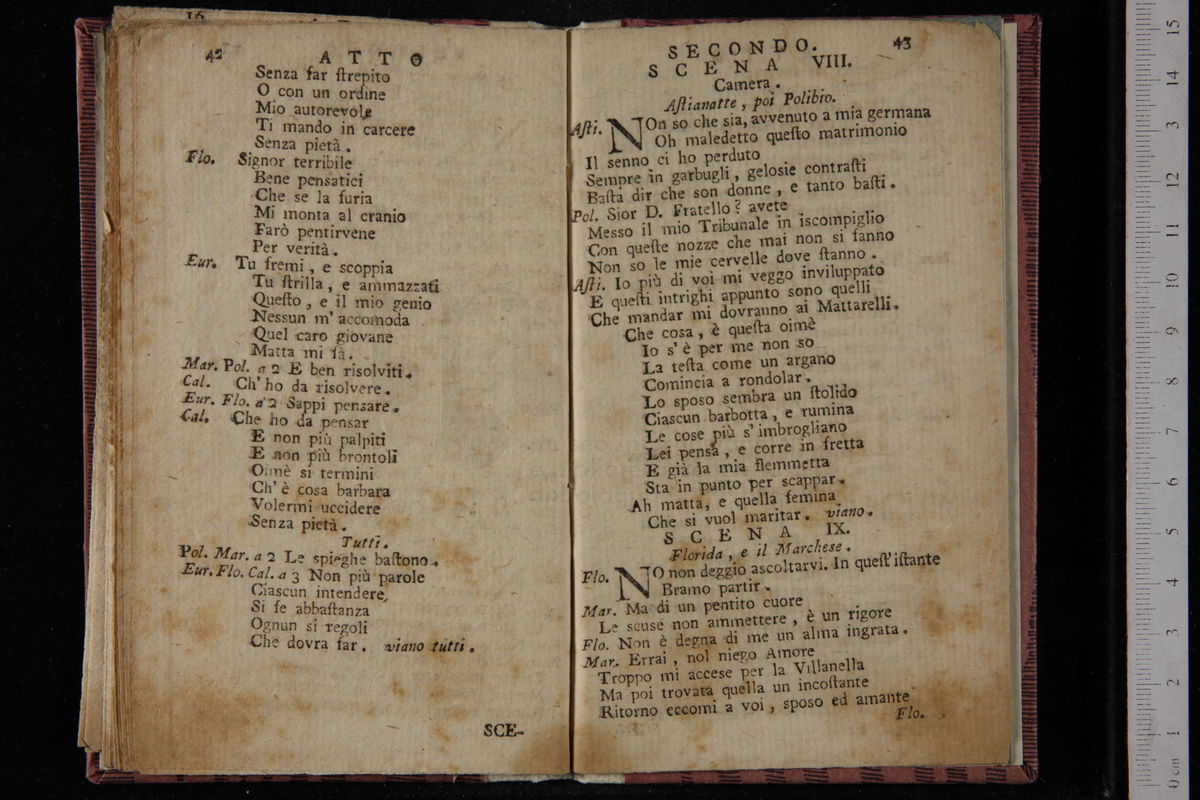 42 ATTO
Senza far ſtrepito
O con un ordine
Mio autorevole
Ti mando in carcere
Senza pietà.
Flo. Signor terribile
Bene pensatici
Che se la furia
Mi monta al cranio
Farò pentirvene
Per verità.
Eur. Tu fremi, e scoppia
Tu ſtrilla, e ammazzati
Queſto, e il mio genio
Nessun m'accomoda
Quel caro giovane
Matta mi fà.
Mar. Pol. a 2 E ben risolviti.
Cal. Ch'ho da risolvere.
Eur. Flo. a 2 Sappi pensare.
Cal. Che ho da pensar
E non più palpiti
E non più brontoli
Oimè si termini
Ch'è cosa barbara
Volermi uccidere
Senza pietà.
Tutti.
Pol. Mar. a 2 Le spieghe baſtono.
Eur. Flo. Cal. a 3 Non più parole
Ciascun intendere
Si fe abbaſtanza
Ognun si regoli
Che dovra far. viano tutti.
SCE-
SECONDO. 43
SCENA VIII.
Camera.
Aſtianatte, poi Polibio.
Aſti. NOn so che sia, avvenuto a mia germana
Oh maledetto queſto matrimonio
Il senno ci ho perduto
Sempre in garbugli, gelosie contraſti
Baſta dir che son donne, e tanto baſti.
Pol. Sior D. Fratello? avete
Messo il mio Tribunale in iscompiglio
Con queſte nozze che mai non si fanno
Non so le mie cervelle dove ſtanno.
Aſti. Io più di voi mi veggo inviluppato
E queſti intrighi appunto sono quelli
Che mandar mi dovranno ai Mattarelli.
Che cosa, è queſta oimè
Io s'è per me non so
La teſta come un argano
Comincia a rondolar.
Lo sposo sembra un ſtolido
Ciascun barbotta, e rumina
Le cose più s'imbrogliano
Lei pensa, e corre in fretta
E già la mia flemmetta
Sta in punto per scappar.
Ah matta, e quella femina
Che si vuol maritar. viano.
SCENA IX.
Florida, e il Marchese.
Flo. NO non deggio ascoltarvi. In queſt'iſtante
Bramo partir.
Mar. Ma di un pentito cuore
Le scuse non ammettere, è un rigore
Flo. Non è degna di me un alma ingrata.
Mar. Errai, nol niego Amore
Troppo mi accese per la Villanella
Ma poi trovata quella un incoſtante
Ritorno eccomi a voi, sposo ed amante
Flo.
15
14
13
12
11
10
9
8
7
6
5
4
3
2
1
0 cm